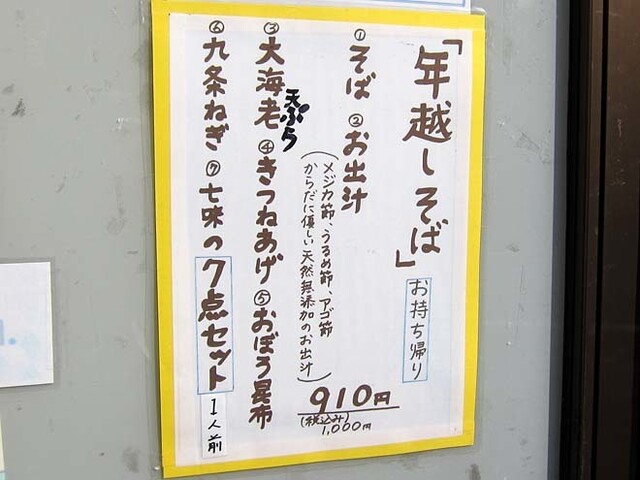 「年越しそば」
お持ち帰り
①そば ②お出汁
(メジカ節、うるめ節、アゴ節
からだに優しい天然無添加のお出汁)
③大海老天ぷら ④きつねあげ ⑤おぼろ昆布
⑥九条ねぎ ⑦七味の7点セット
1人前
910円
(税込み)
1,000円